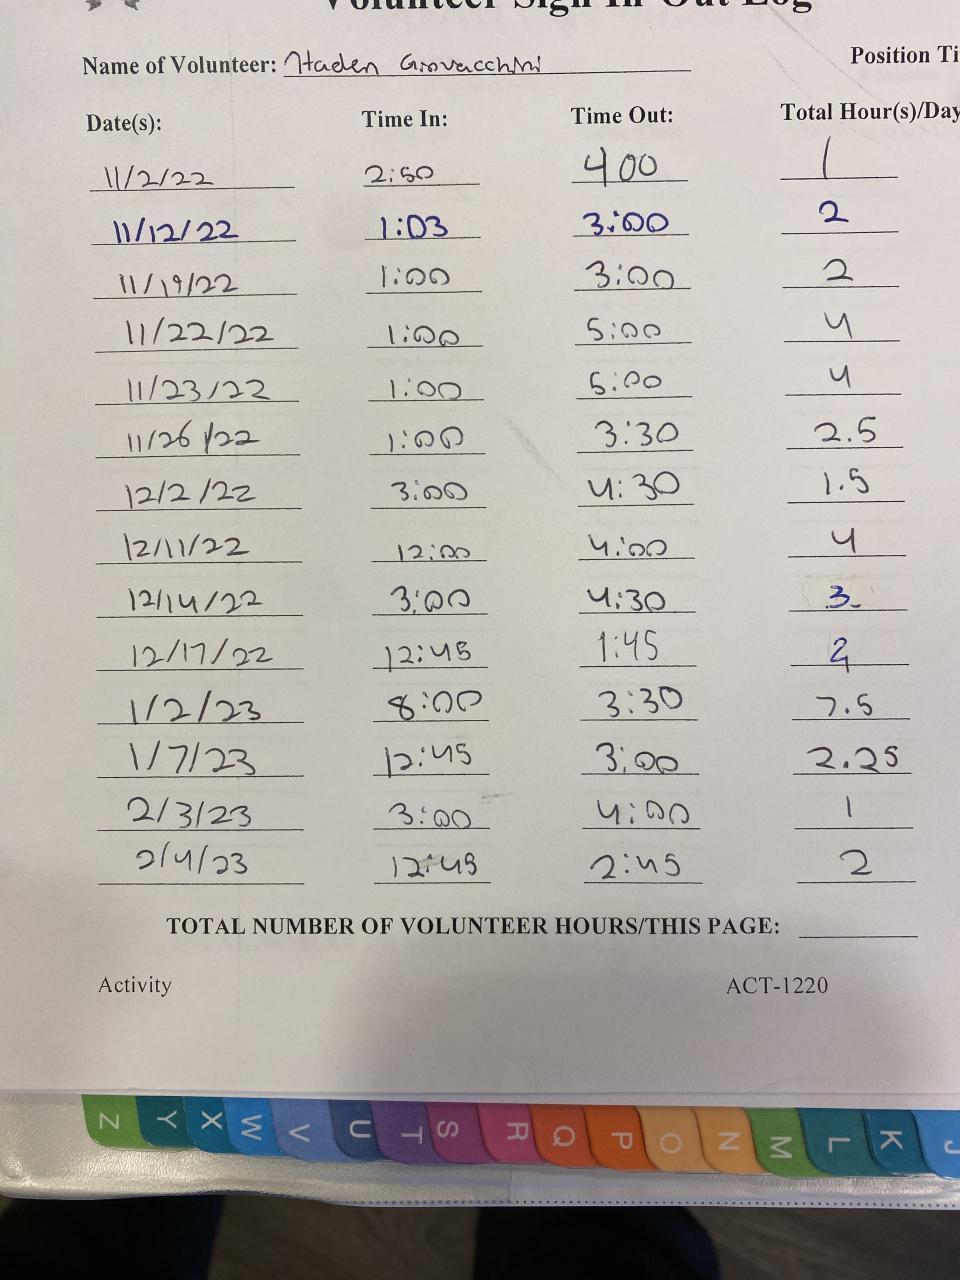 Volunteer Sign In Out Log
Name of Volunteer: Haden Giovacchini Position Ti
Date(s): Time In: Time Out: Total Hour(s)/Day
11/2/22 2:50 400 1
11/12/22 1:03 3:00 2
11/19/22 1:00 3:00 2
11/22/22 1:00 5:00 4
11/23/22 1:00 5:00 4
11/26/22 1:00 3:30 2.5
12/2/22 3:00 4:30 1.5
12/11/22 12:00 4:00 4
12/14/22 3:00 4:30 3
12/17/22 12:45 1:45 2
1/2/23 8:00 3:30 7.5
1/7/23 12:45 3:00 2.25
2/3/23 3:00 4:00 1
2/4/23 12:45 2:45 2
TOTAL NUMBER OF VOLUNTEER HOURS/THIS PAGE:
Activity ACT-1220
Z Y X W V U T S R Q P O N M L K J